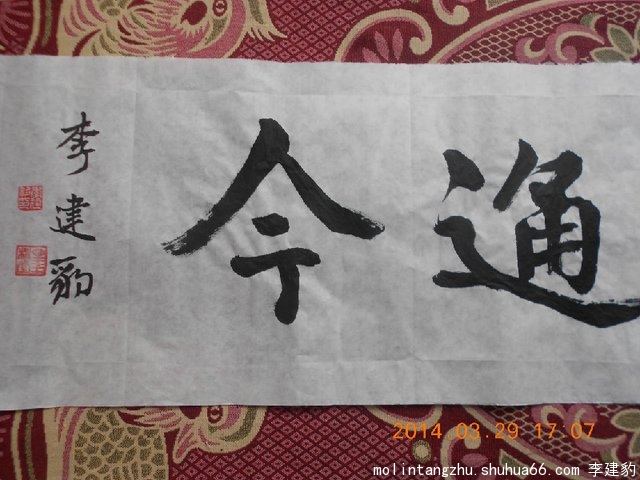 通今
李建豹
2014.03.29 17:07
molintangzhu.shuhua66.com 李建豹